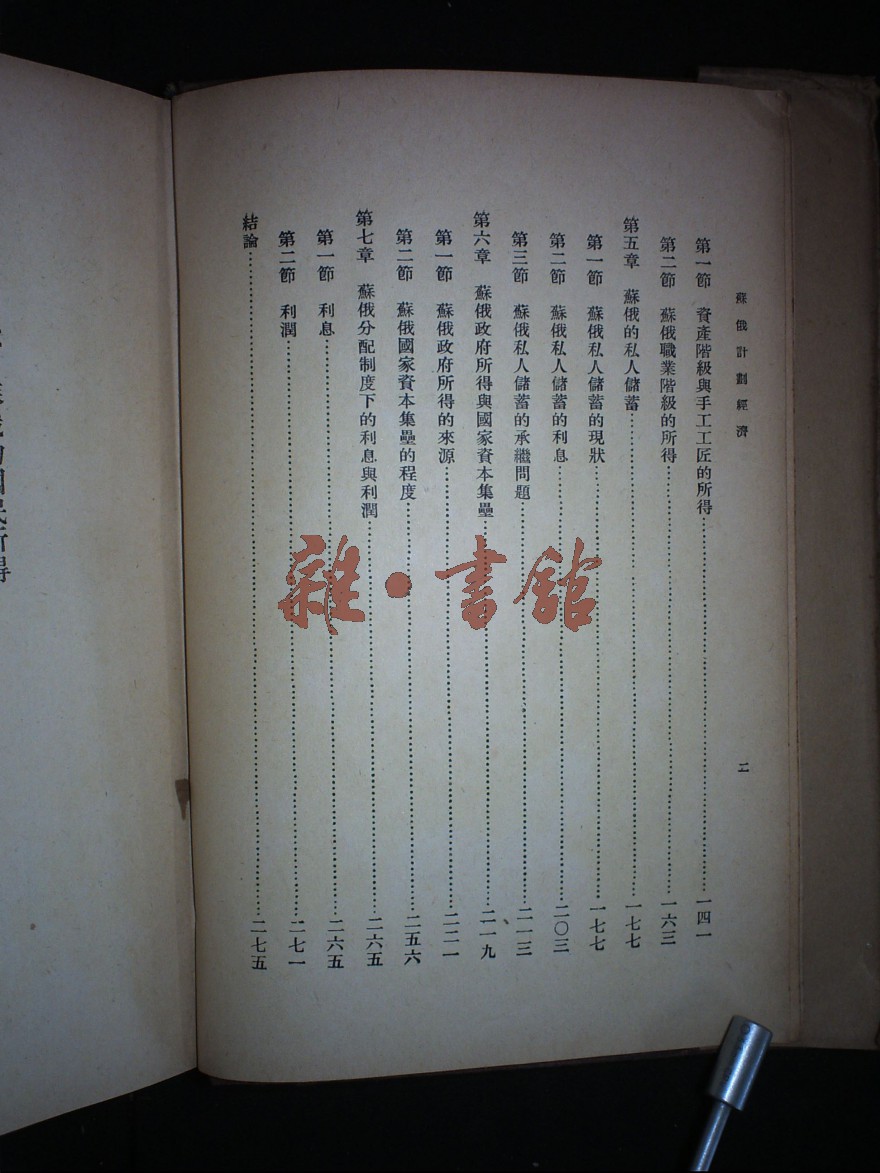 蘇俄計劃經濟
二
第一節 資產階級與手工工匠的所得 一四一
第二節 蘇俄職業階級的所得 一六三
第五章 蘇俄的私人儲蓄 一七七
第一節 蘇俄私人儲蓄的現狀 一七七
第二節 蘇俄私人儲蓄的利息 二〇三
第三節 蘇俄私人儲蓄的承繼問題 二一三
第六章 蘇俄政府所得與國家資本集壘 二一九
第一節 蘇俄政府所得的來源 二二一
第二節 蘇俄國家資本集壘的程度 二五六
第七章 蘇俄分配制度下的利息與利潤 二六五
第一節 利息 二六五
第二節 利潤 二七一
結論 二七五
雜·書館
的國民所得